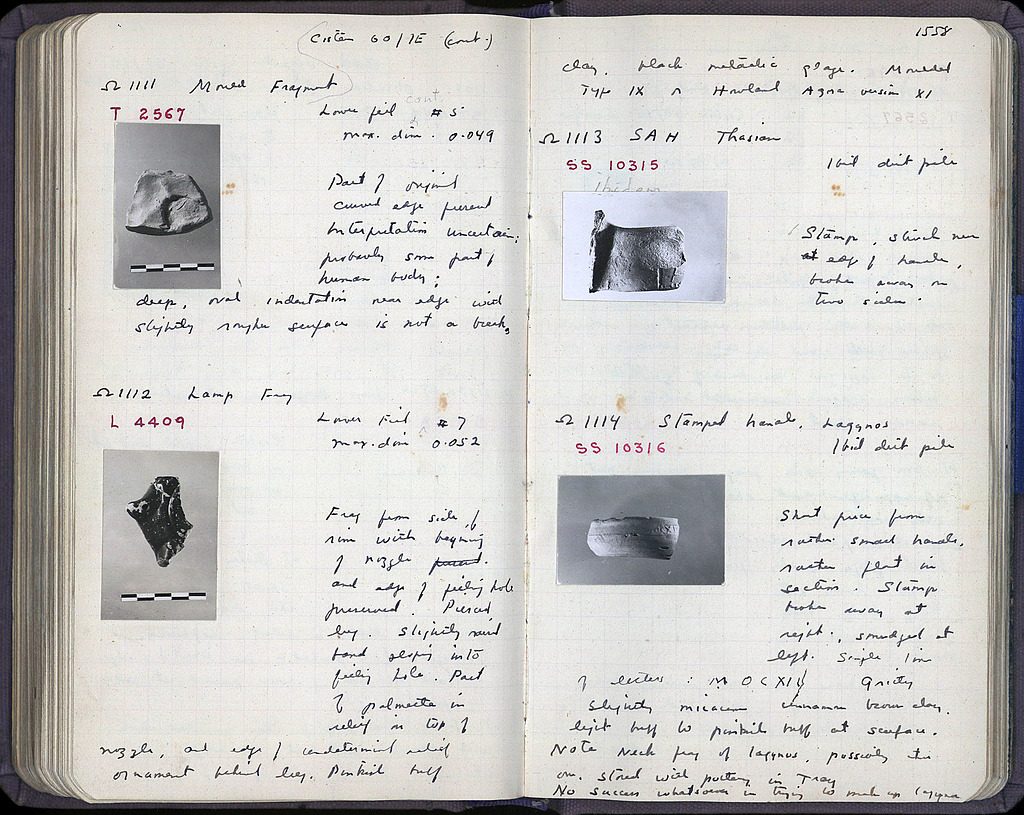 Cistern 60/ΠΕ (cont.)
Ω1111 Mould Fragment
T 2567
cont.
Lower fill #5
max. dim. 0.049
Part of original
curved edge present
Interpretation uncertain;
probably some part of
human body;
deep, oval indentation near edge with
slightly rougher surface is not a break.
Ω1112 Lamp Frag
L 4409
Lower Fill #7
max. dim 0.052
Frag from side, of
rim with beginning
of nozzle present.
and edge of filling hole
preserved. Pierced
lug. Slightly raised
band sloping into
filling hole. Part
of palmette in
relief on top of
nozzle, and edge of indeterminate relief
ornament behind lug. Pinkish buff
1558
clay, black metallic glaze. Moulded
Type IX Howland Agora version XI
Ω1113 SAH Thasian
SS 10315
Ibid dirt pile
Ibidem
Stamp, struck near
edge of handle,
broken away on
two sides.
Ω1114 Stamped handle, Lagynos
SS 10316
Ibid dirt pile
Short piece from
rather small handle,
rather flat in
section. Stamp
broken away at
right, smudged at
left. Single line
of letters: ΜΟCΧΙ Gritty
slightly micaceous cinnamon brown clay.
light buff to pinkish buff at surface.
Note Neck frag of lagynos, possibly this
one. Stored with pottery in Tray
No success whatsoever in trying to make up lagynos